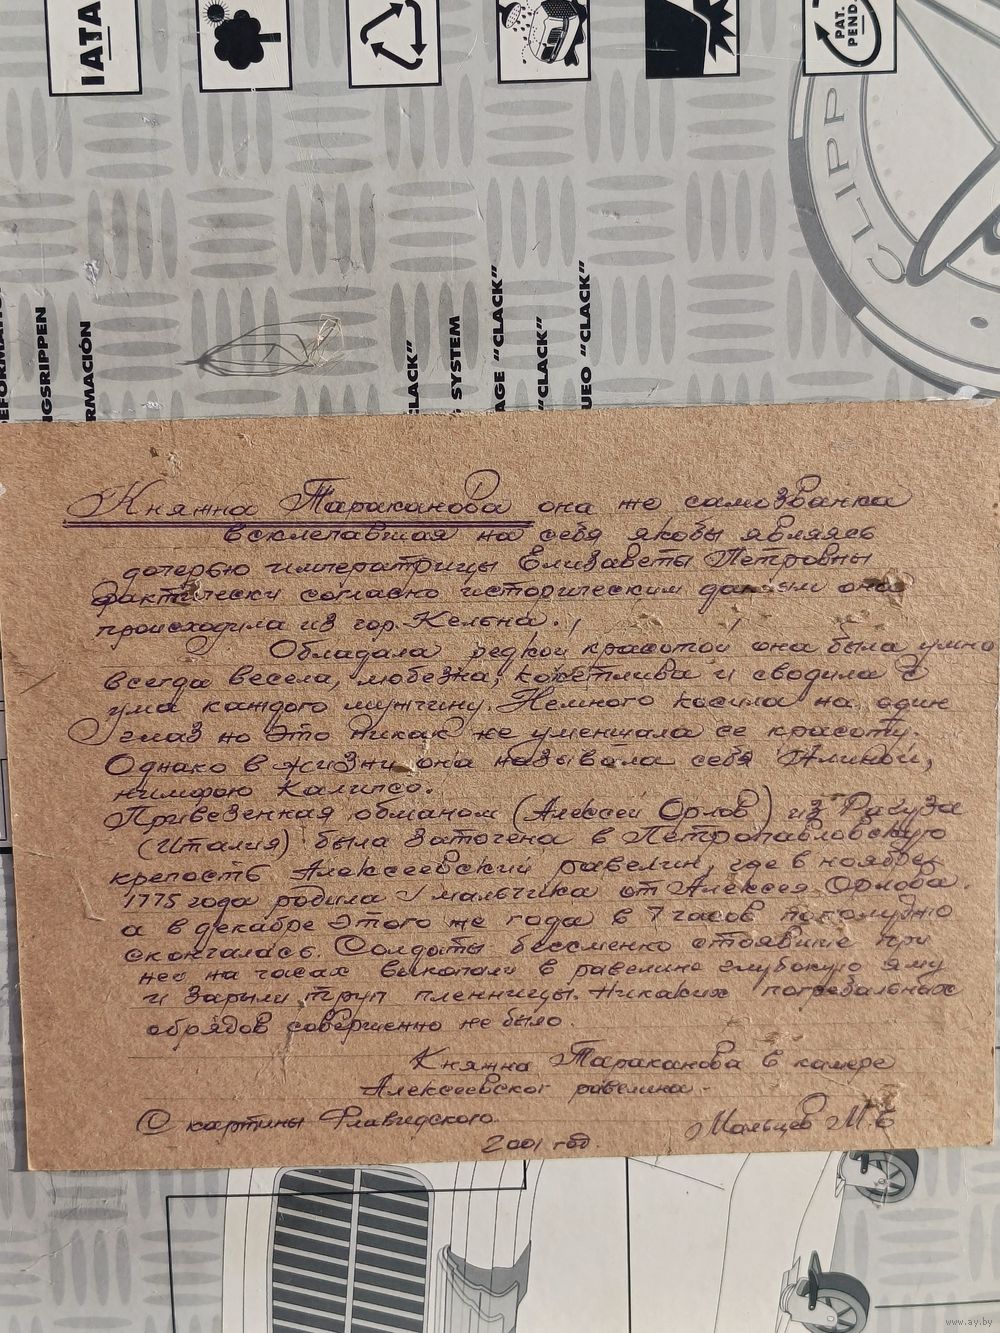 IATA
PAT.
PEND.
CLIPP
NGSRIPPEN
RMACIÓN
CLACK"
SYSTEM
AGE "CLACK"
"CLACK"
UEO "CLACK"
Княжна Тараканова она же самозванка
всклепавшая на себя якобы являясь
дочерью императрицы Елизаветы Петровны
фактически согласно историческим данным она
происходила из гор. Кельна.
Обладала редкой красотой она была умна
всегда весела, любезна, кокетлива и сводила с
ума каждого мужчину. Немного косила на один
глаз но это никак не уменшала ее красоту.
Однако в жизни она называла себя Алиной,
нимфою Калипсо.
Привезенная обманом (Алексей Орлов) из Рагуза
(Италия) была заточена в Петропавловскую
крепость Алексеевский равелин, где в ноябре
1775 года родила мальчика от Алексея Орлова.
а в декабре этого же года в 7 часов пополудню
скончалась. Солдаты бессменно стоявшие при
ней на часах выкопали в равелине глубокую яму
и зарыли труп пленницы. Никаких погребальных
обрядов совершенно не было.
Княжна Тараканова в камере
Алексеевског равелина.
С картины Флавидского
2001 год.
Мальцев М.Е
www.ay.by